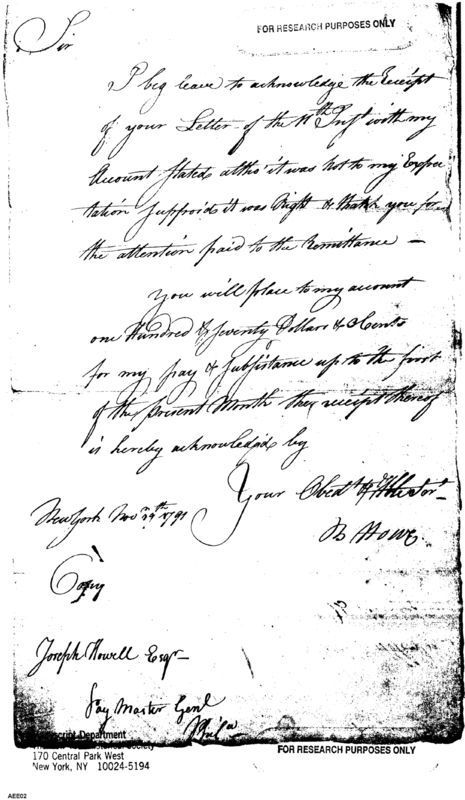 FOR RESEARCH PURPOSES ONLY
Sir
I beg leave to acknowledge the Receipt
of your Letter of the 11th Inst with my
Account Stated altho' it was not to my Expec
tation supposed it was Right & thank you for
the attention paid to the Remittance —
You will place to my account
one Hundred & seventy Dollars & Cents
for my pay & Subsistance up to the first
of the present Month the receipt thereof
is hereby acknowledged by
Your Obedt Hble Sert
New York Novr 1791
B Howe
Copy
Joseph Howell Esqr —
Pay Master Genl
Phila
Manuscript Department
Society
170 Central Park West
New York, NY 10024-5194
FOR RESEARCH PURPOSES ONLY
AEE02